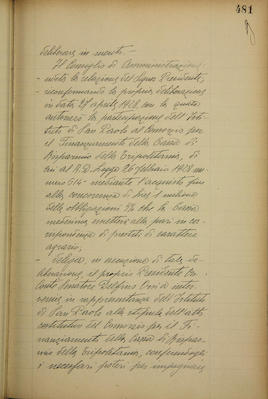 481
deliberare in merito.—
Il Consiglio di Amministrazione:
- udita la relazione del Signor Presidente,
- riconfermando la propria deliberazione
in data 27 aprile 1928 con la quale
autorizzò la partecipazione dell'Isti-
tuto di San Paolo al Consorzio per
il Finanziamento della Cassa di
Risparmio della Tripolitania, di
cui al R.D. Legge 26 febbraio 1928 nu-
mero 514 mediante l'acquisto fino
alla concorrenza di due milioni
delle obbligazioni che la Cassa
medesima emetterà alla pari in cor-
rispondenza di prestiti di carattere
agrario;
- delega, in esecuzione di tale de-
liberazione, il proprio Presidente On.
Conte Senatore Delfino Orsi a inter-
venire in rappresentanza dell'Istituto
di San Paolo alla stipula dell'atto
costitutivo del Consorzio per il Fi-
nanziamento della Cassa di Rispar-
mio della Tripolitania, conferendogli
i necessari poteri per impegnare